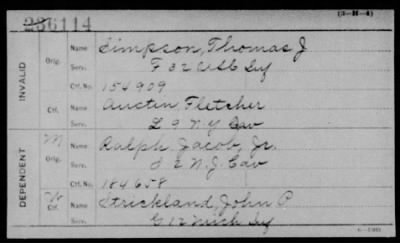 (3-H-4)
286114
Name Simpson, Thomas J
INVALID
Orig. Serv. F 32 U.S.C. Inf
Ctf. No. 154909
Name Austin Fletcher
Ctf. Serv. L 9 N.Y. Cav
DEPENDENT
M Name Ralph, Jacob, Jr.
Orig. Serv. I 2 N.J. Cav
Ctf. No. 184658
W Name Strickland, John P
Ctf. Serv. G 12 Mich Inf